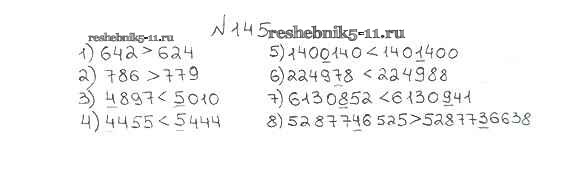 №145
reshebnik5-11.ru
reshebnik5-11.ru
1) 642 > 624
2) 786 > 779
3) 4897 < 5010
4) 4455 < 5444
5) 1400140 < 1401400
6) 224978 < 224988
7) 6130852 < 6130941
8) 5287746525 > 5287736638